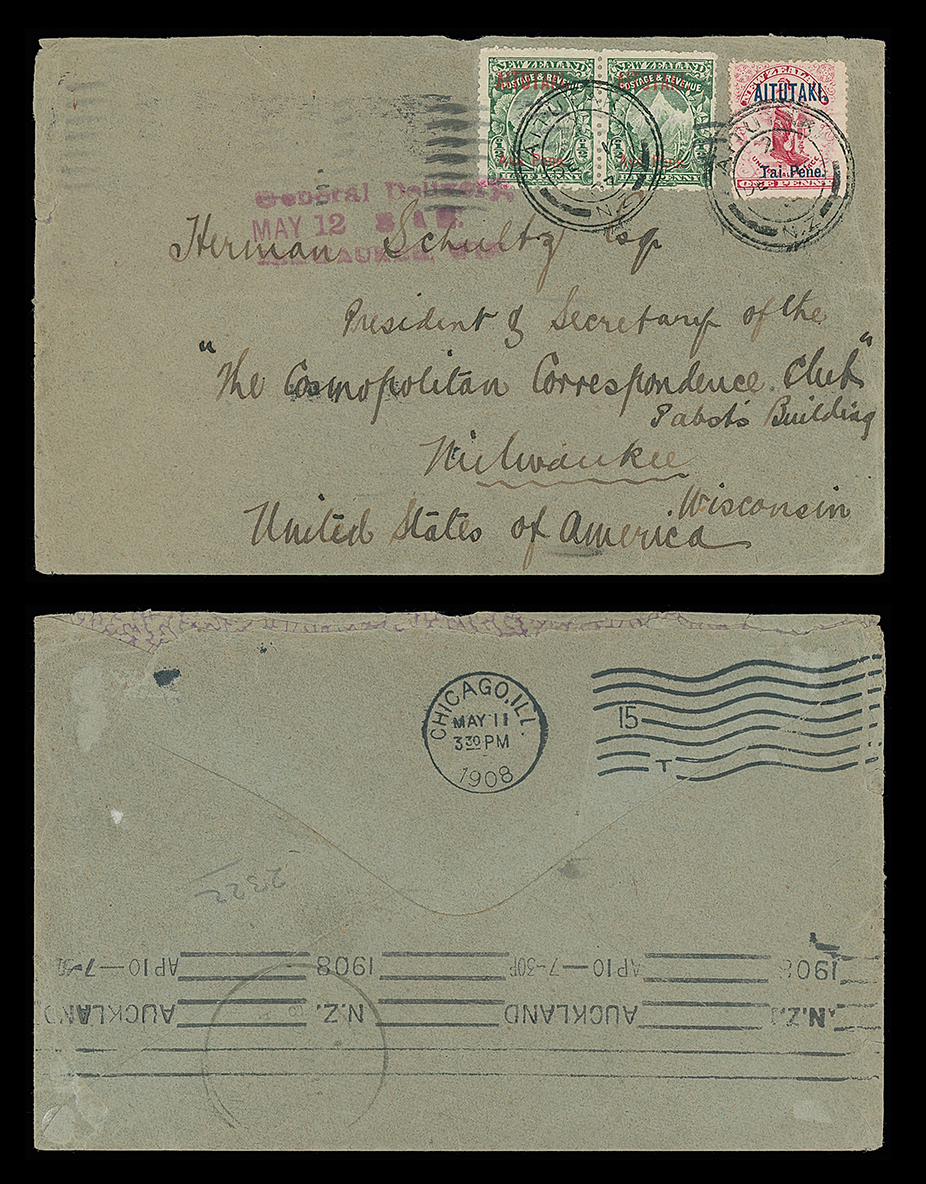 NEW ZEALAND NEW ZEALAND
AITUTAKI
POSTAGE & REVENUE POSTAGE & REVENUE
NEW ZEALAND
AITUTAKI.
Tai Pene.
ONE PENNY
N.Z
N.Z
General Delivery
MAY 12
Herman Schultz Esq
President & Secretary of the
"The Cosmopolitan Correspondence Club"
Pabst's Building
Milwaukee
Wisconsin
United States of America
CHICAGO, ILL.
MAY 11
3 30 PM
1908
15
T
2322
AUCKLAND N.Z. AUCKLAND N.Z.
AP10-7-30 1908 AP10-7-30P 1908